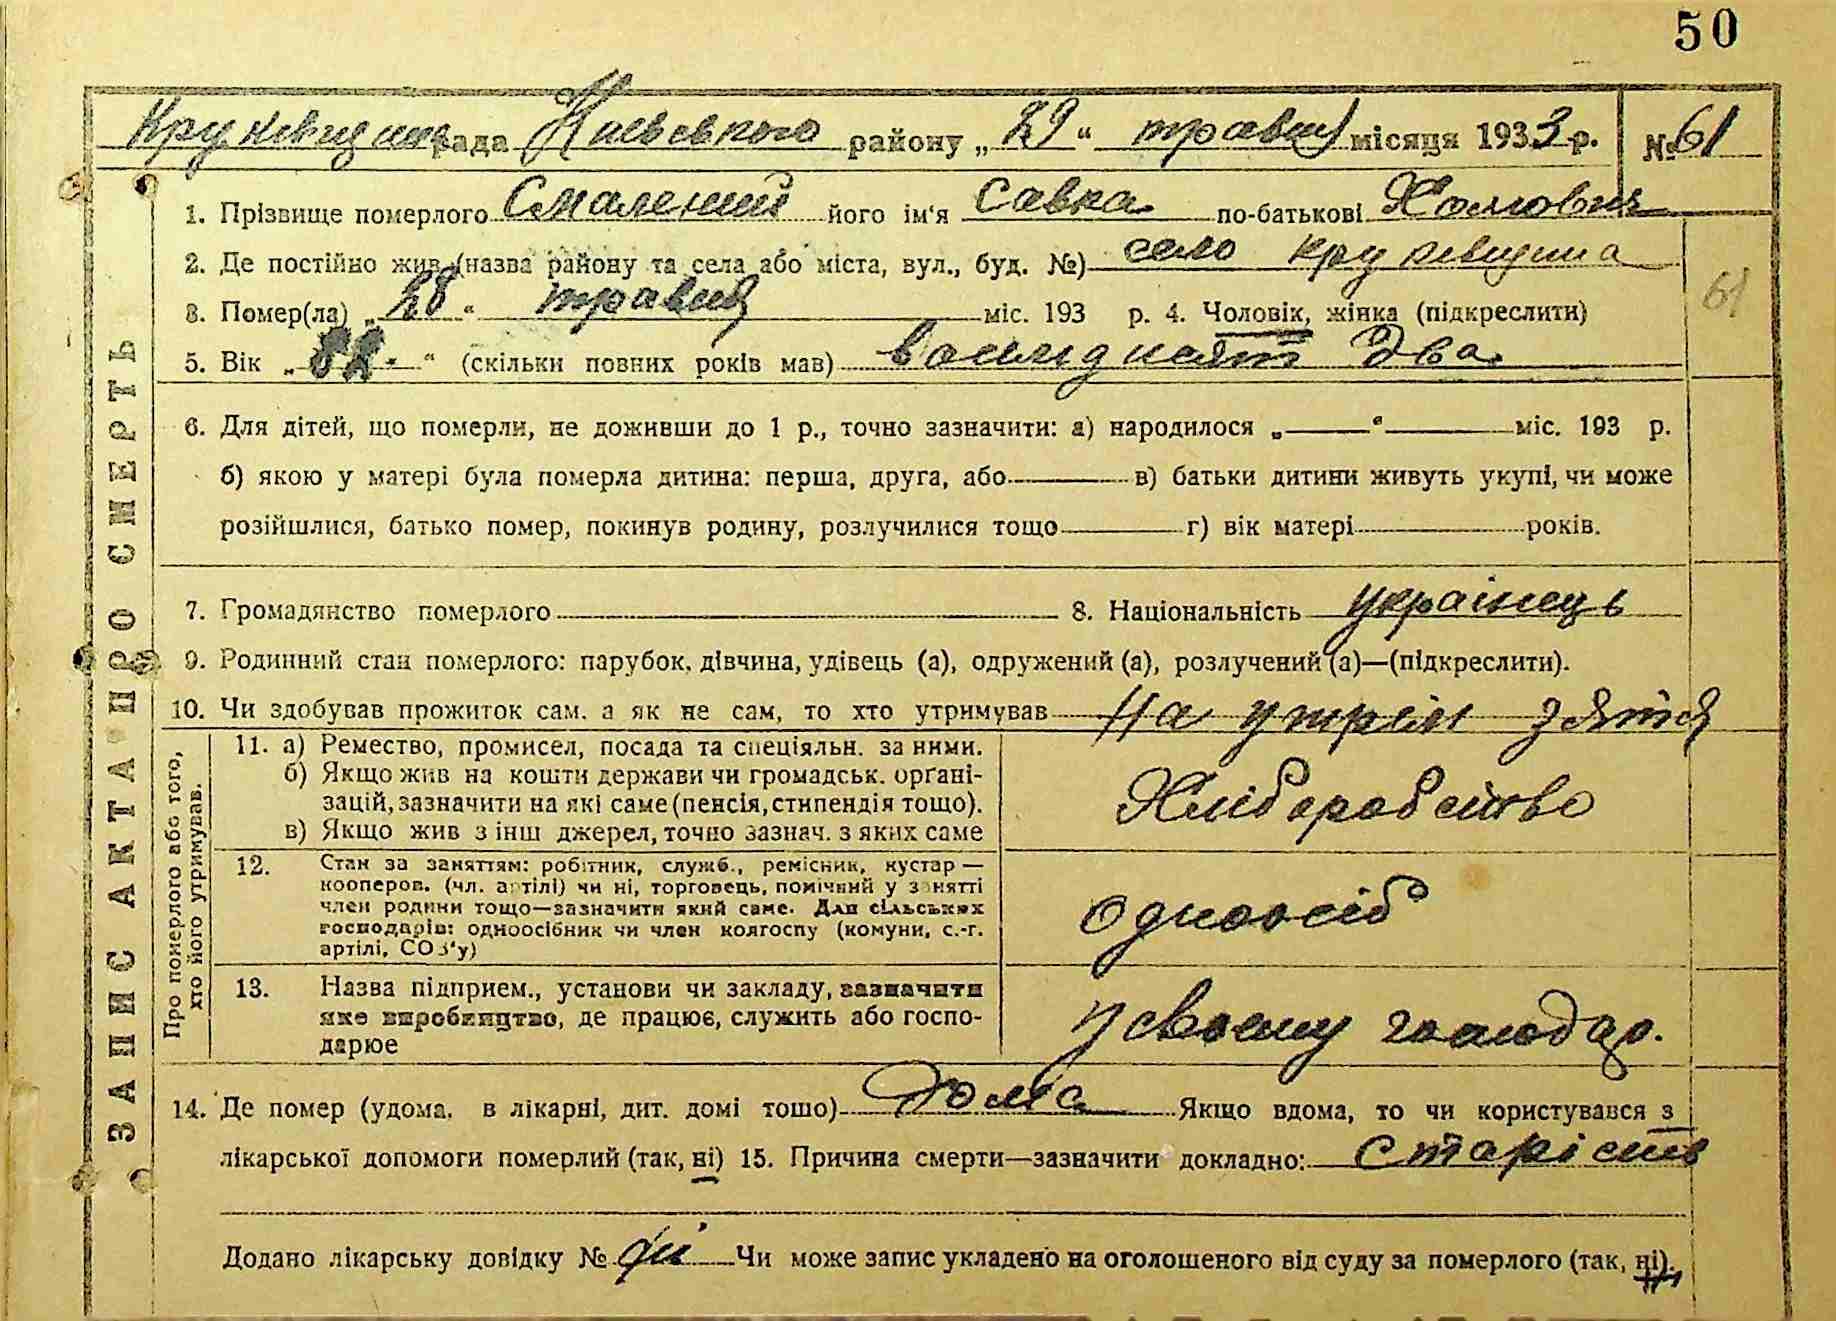 50
рада Київського району „29“ травня місяця 1933 р. № 61
1. Прізвище померлого Смалений його ім'я Савка по-батькові
2. Де постійно жив (назва району та села або міста, вул., буд. №) село
3. Помер(ла) „28“ травня міс. 193 р. 4. Чоловік, жінка (підкреслити)
61
5. Вік „82“ (скільки повних років мав) два
6. Для дітей, що померли, не доживши до 1 р., точно зазначити: а) народилося „ “ міс. 193 р.
б) якою у матері була померла дитина: перша, друга, або в) батьки дитини живуть укупі, чи може
розійшлися, батько помер, покинув родину, розлучилися тощо г) вік матері років.
7. Громадянство померлого 8. Національність українець
9. Родинний стан померлого: парубок, дівчина, удівець (а), одружений (а), розлучений (а)—(підкреслити).
10. Чи здобував прожиток сам, а як не сам, то хто утримував На утрим зятя
ЗАПИС АКТА ПРО СМЕРТЬ
Про померлого або того, хто його утримував.
11. а) Ремество, промисел, посада та спеціяльн. за ними.
б) Якщо жив на кошти держави чи громадськ. орґані-
зацій, зазначити на які саме (пенсія, стипендія тощо).
в) Якщо жив з інш джерел, точно зазнач. з яких саме
Хліборобство
12. Стан за заняттям: робітник, служб., ремісник, кустар —
кооперов. (чл. артілі) чи ні, торговець, помічний у занятті
член родини тощо—зазначити який саме. Для сільських
господарів: одноосібник чи член колгоспу (комуни, с.-г.
артілі, СОЗ'у)
одноосіб
13. Назва підприєм., установи чи закладу, зазначити
яке виробництво, де працює, служить або госпо-
дарює
У своєму господар.
14. Де помер (удома, в лікарні, дит. домі тощо) дома Якщо вдома, то чи користувався з
лікарської допомоги померлий (так, ні) 15. Причина смерти—зазначити докладно: старість
Додано лікарську довідку № ні Чи може запис укладено на оголошеного від суду за померлого (так, ні).